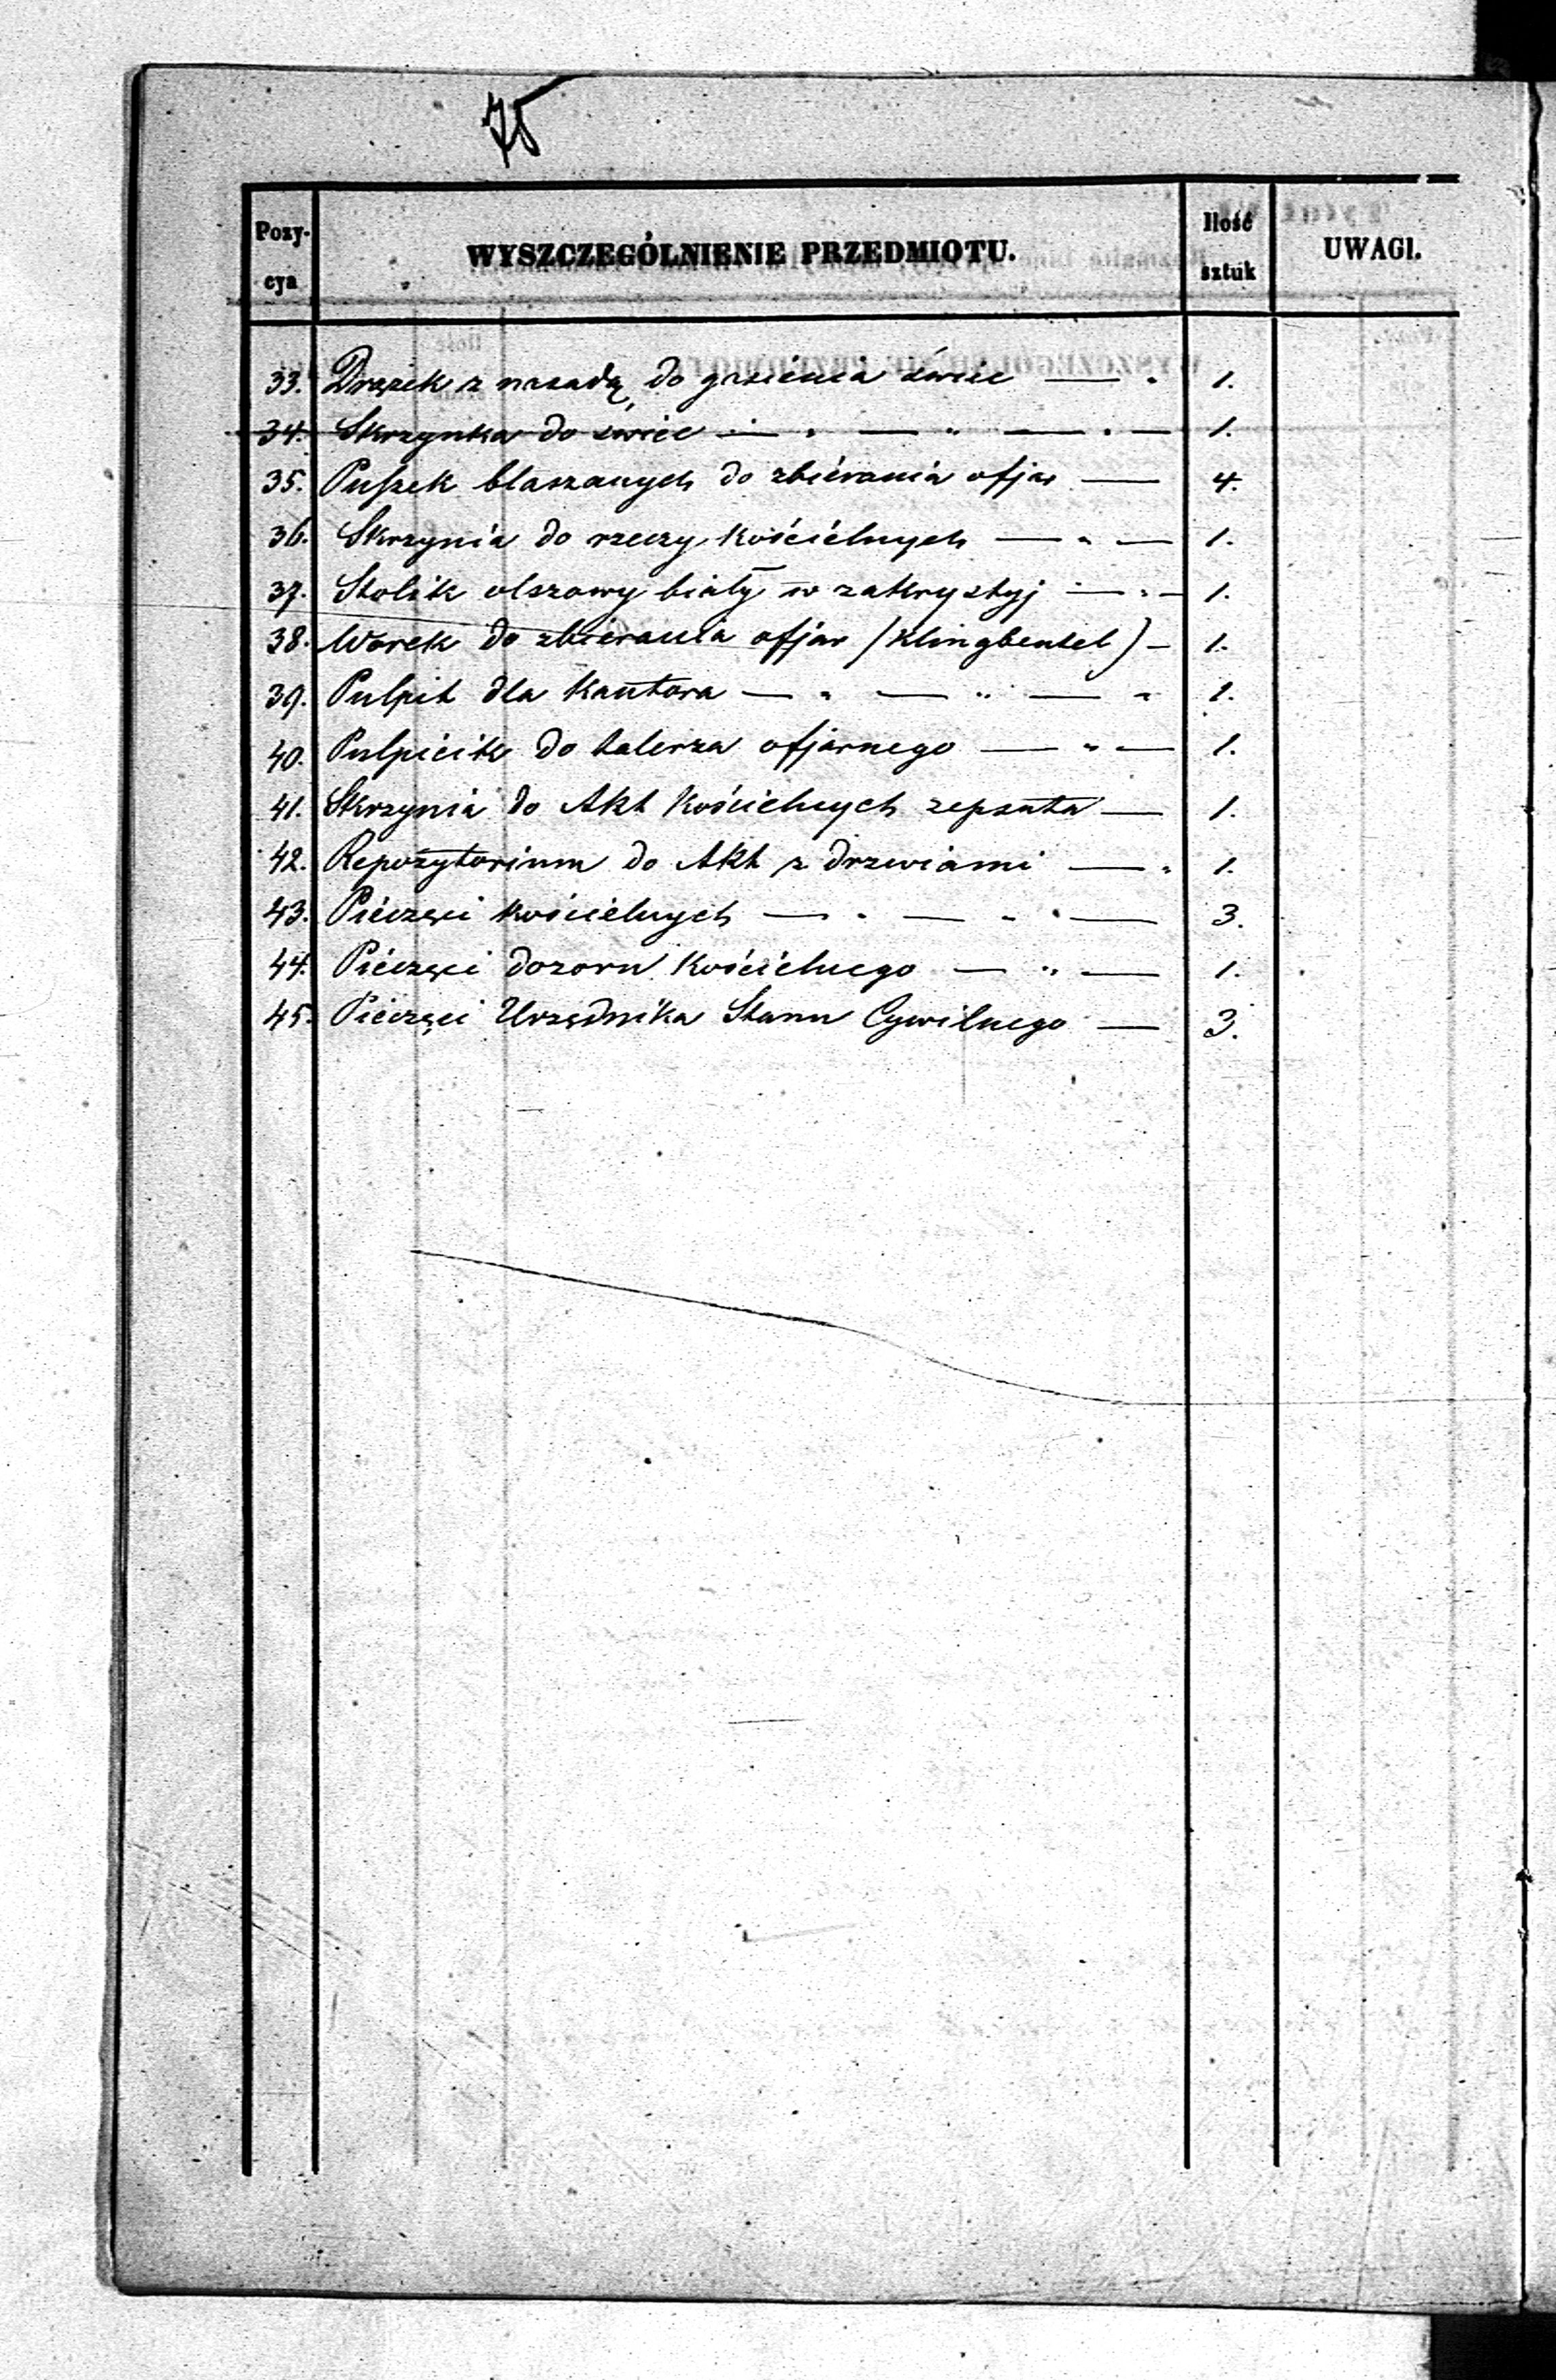 75
Pozy-
cya
WYSZCZEGÓLNIENIE PRZEDMIOTU.
Ilość
sztuk
UWAGI.
33. Drążek z nasadą do gaszenia świec — " 1.
34. Skrzynka do świec — " — " — " — 1.
35. Puszek blaszanych do zbiérania ofjar — 4.
36. Skrzynia do rzeczy Kościélnych — " — 1.
37. Stolik olszowy biały w zakrystyj — " — 1.
38. Worek do zbierania ofjar (Klingbeutel) — 1.
39. Pulpit dla Kantora — " — " — " 1.
40. Pulpicik do talerza ofjarnego — " — 1.
41. Skrzynia do Akt Kościelnych zepsuta — 1.
42. Repozytorium do Akt z drzwiami — " 1.
43. Piéczęci Kościelnych — " — " — 3.
44. Piéczęci dozoru Kościélnego — " — 1.
45. Piéczęci Urzędnika Stanu Cywilnego — 3.